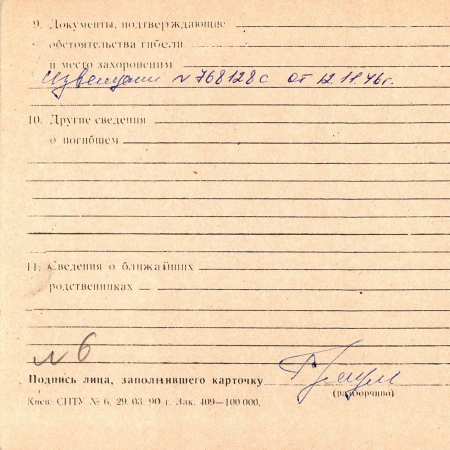 9. Документы, подтверждающие
обстоятельства гибели
и место захоронения
Извещение № 768128с от 12.11.46г.
10. Другие сведения
о погибшем
11. Сведения о ближайших
родственниках
№ 6
Подпись лица, заполнившего карточку
(разборчиво)
Киев. СПТУ № 6, 29. 03. 90 г. Зак. 409—100 000.